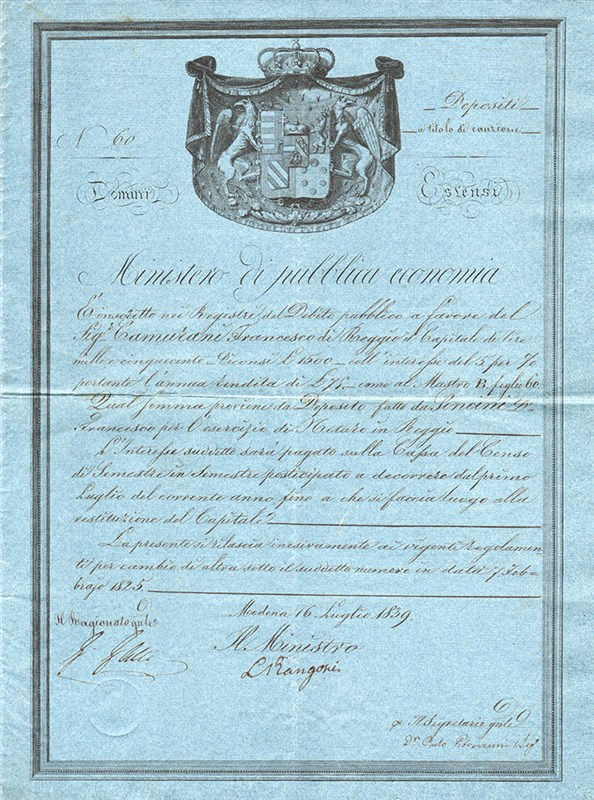 Depositi
a titolo di cauzione
N. 60
Domini
Estensi
Ministero di pubblica economia
È inscritto nei Registri del Debito pubblico a favore del
Sigr. Camurani Francesco di Reggio il Capitale de Lire
mille e cinquecento. Diconsi £ 1500_ coll' interesse del 5 per %
portante l'annua rendita di £ 75_ come al Mastro B. foglio 60.
Qual somma proviene da Deposito fatto da
Francesco per l'esercizio di Notaro in Reggio
L'Interesse suddetto sarà pagato sulla Cassa del Censo
di Semestre in Semestre posticipato a decorrere dal primo
Luglio del corrente anno fino a che si faccia luogo alla
restituzione del Capitale
La presente si rilascia inesivamente ai vigenti regolamen=
ti per cambio di altra sotto il suddetto numero in data 7 Feb=
brajo 1825.
Modena 16 Luglio 1839.
Il Ragionato gnle
Il Ministro
L Rangoni
Il Segretario gnle